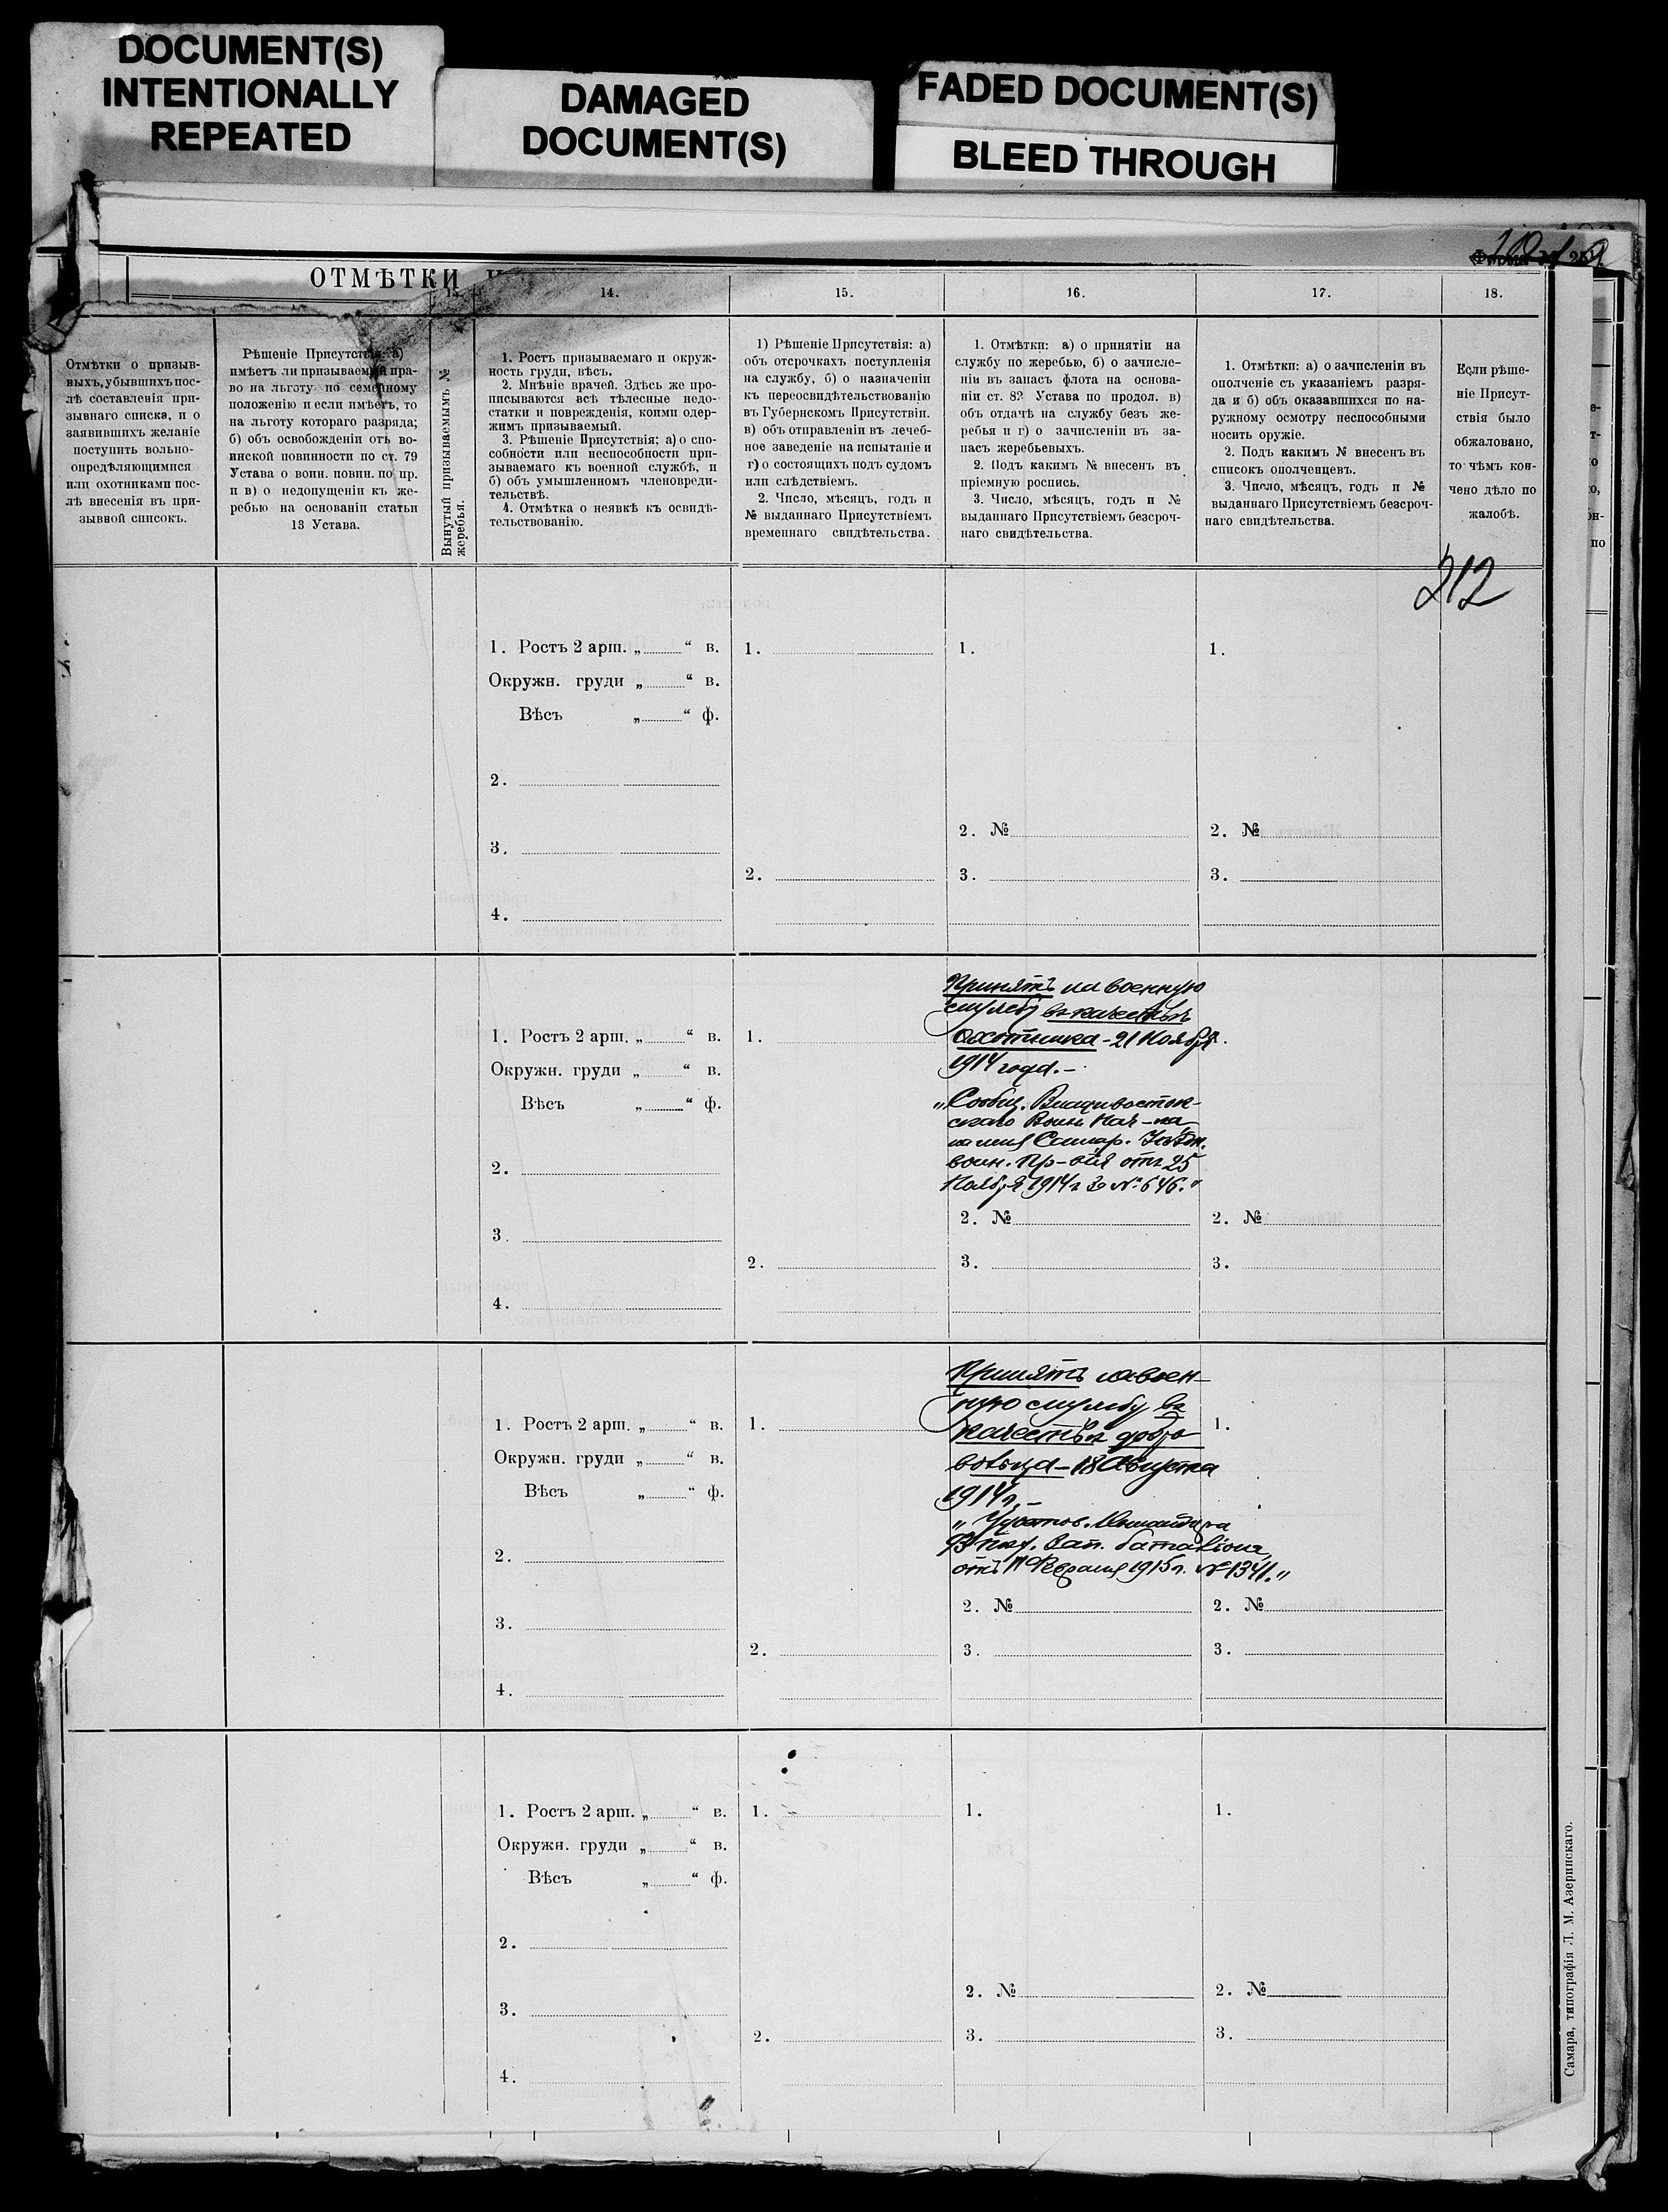 DOCUMENT(S)
INTENTIONALLY
REPEATED
DAMAGED
DOCUMENT(S)
FADED DOCUMENT(S)
BLEED THROUGH
ОТМѢТКИ
14.
15.
16.
17.
18.
Отмѣтки о призыв-
ныхъ, убывшихъ пос-
лѣ составленія при-
зывнаго списка, и о
заявившихъ желаніе
поступить вольно-
опредѣляющимися
или охотниками пос-
лѣ внесенія въ при-
зывной списокъ.
Рѣшеніе Присутствія: а)
имѣетъ ли призываемый пра-
во на льготу по семейному
положенію и если имѣетъ, то
на льготу котораго разряда;
б) объ освобожденіи отъ во-
инской повинности по ст. 79
Устава о воин. повин. по пр.
и в) о недопущеніи къ же-
ребью на основаніи статьи
13 Устава.
Вынутый призываемымъ №
жеребья.
1. Ростъ призываемаго и окруж-
ность груди, вѣсъ.
2. Мнѣніе врачей. Здѣсь же про-
писываются всѣ тѣлесные недо-
статки и поврежденія, коими одер-
жимъ призываемый.
3. Рѣшеніе Присутствія: а) о спо-
собности или неспособности при-
зываемаго къ военной службѣ, и
б) объ умышленномъ членовреди-
тельствѣ.
4. Отмѣтка о неявкѣ къ освидѣ-
тельствованію.
1) Рѣшеніе Присутствія: а)
объ отсрочкахъ поступленія
на службу, б) о назначеніи
къ переосвидѣтельствованію
въ Губернскомъ Присутствіи.
в) объ отправленіи въ лечеб-
ное заведеніе на испытаніе и
г) о состоящихъ подъ судомъ
или слѣдствіемъ.
2. Число, мѣсяцъ, годъ и
№ выданнаго Присутствіемъ
временнаго свидѣтельства.
1. Отмѣтки: а) о принятіи на
службу по жеребью, б) о зачисле-
ніи въ запасъ флота на основа-
ніи ст. 82 Устава по продол. в)
объ отдачѣ на службу безъ же-
ребья и г) о зачисленіи въ за-
пасъ жеребьевыхъ.
2. Подъ какимъ № внесенъ въ
пріемную роспись.
3. Число, мѣсяцъ, годъ и №
выданнаго Присутствіемъ безсроч-
наго свидѣтельства.
1. Отмѣтки: а) о зачисленіи въ
ополченіе съ указаніемъ разря-
да и б) объ оказавшихся по на-
ружному осмотру неспособными
носить оружіе.
2. Подъ какимъ № внесенъ въ
списокъ ополченцевъ.
3. Число, мѣсяцъ, годъ и №
выданнаго Присутствіемъ безсроч-
наго свидѣтельства.
Если рѣше-
ніе Присут-
ствія было
обжаловано,
то чѣмъ кон-
чено дѣло по
жалобѣ.
212
1. Ростъ 2 арш. „ “ в.
Окружн. груди „ “ в.
Вѣсъ „ “ ф.
2.
3.
4.
1.
2.
1.
2. №
3.
1.
2. №
3.
1. Ростъ 2 арш. „ “ в.
Окружн. груди „ “ в.
Вѣсъ „ “ ф.
2.
3.
4.
1.
2.
Принятъ на военную
службу въ качествѣ
охотника - 21 Ноября
1914 года. -
„Сообщ. Владивосток-
скаго Воин. Нач-ка
на имя Самар. Уѣздн.
воин. Пр-вія отъ 25
Ноября 1914 г. за № 646."
2. №
3.
2. №
3.
1. Ростъ 2 арш. „ “ в.
Окружн. груди „ “ в.
Вѣсъ „ “ ф.
2.
3.
4.
1.
2.
Принятъ на воен-
ную службу въ
качествѣ добро
вольца - 18 Августа
1914 г. -
„ Удостов. Командира
93 пѣх. Зап. баталіона,
отъ 11 Февраля 1915 г. № 1341."
2. №
3.
1.
2. №
3.
1. Ростъ 2 арш. „ “ в.
Окружн. груди „ “ в.
Вѣсъ „ “ ф.
2.
3.
4.
1.
2.
1.
2. №
3.
1.
2. №
3.
Самара, типографія Л. М. Азеринскаго.